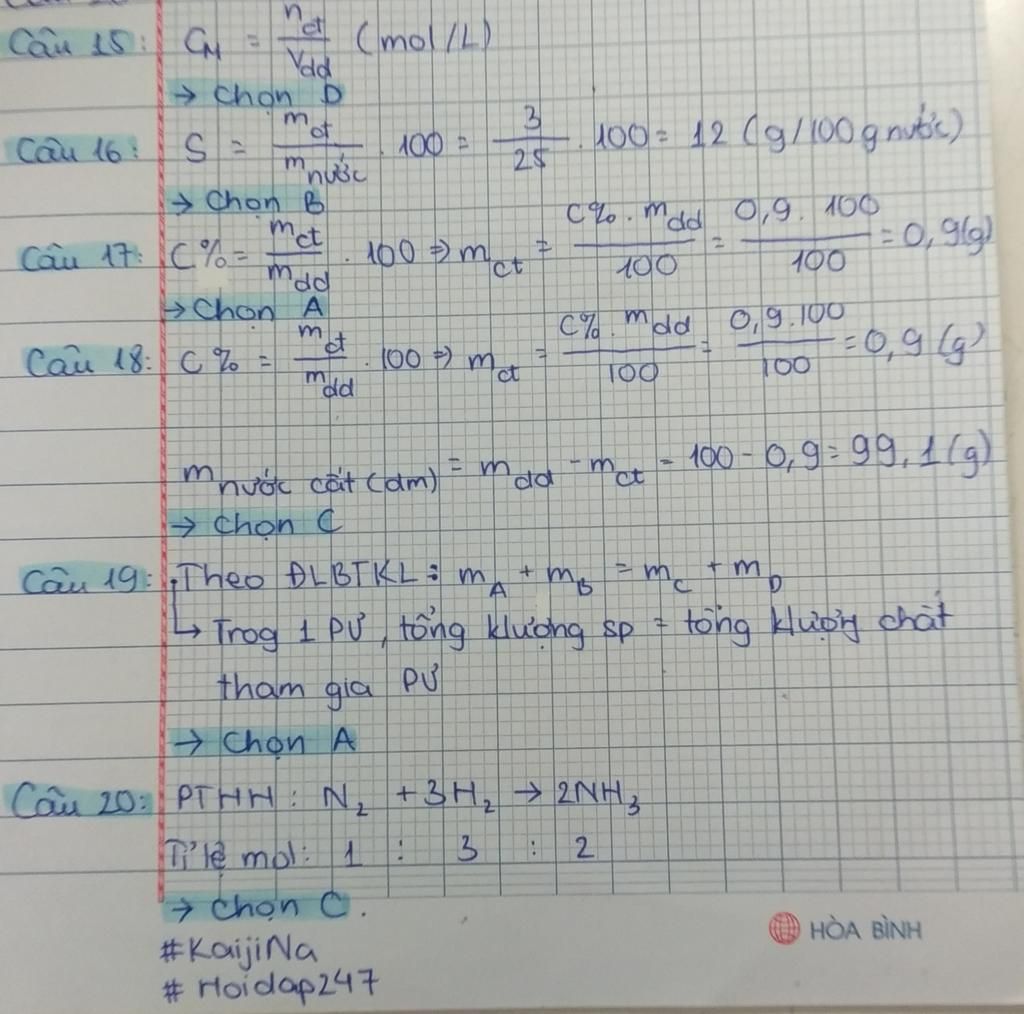 Câu 15: C_M = n_ct / V_dd (mol/L)
→ Chọn D
Câu 16: S = m_ct / m_nước . 100 = 3/25 . 100 = 12 (g/100g nước)
→ Chọn B
Câu 17: C% = m_ct / m_dd . 100 ⇒ m_ct = C% . m_dd / 100 = 0,9 . 100 / 100 = 0,9(g)
→ Chọn A
Câu 18: C% = m_ct / m_dd . 100 ⇒ m_ct = C% . m_dd / 100 = 0,9 . 100 / 100 = 0,9 (g)
m_nước cất (dm) = m_dd - m_ct = 100 - 0,9 = 99,1 (g)
→ Chọn C
Câu 19: Theo ĐLBTKL: m_A + m_B = m_C + m_D
↳ Trog 1 PƯ, tổng klượng sp = tổng klượng chất
tham gia PƯ
→ Chọn A
Câu 20: PTHH: N₂ + 3H₂ → 2NH₃
Tỉ lệ mol: 1 : 3 : 2
→ Chọn C.
#KaijiNa
# Hoidap247
HÒA BÌNH